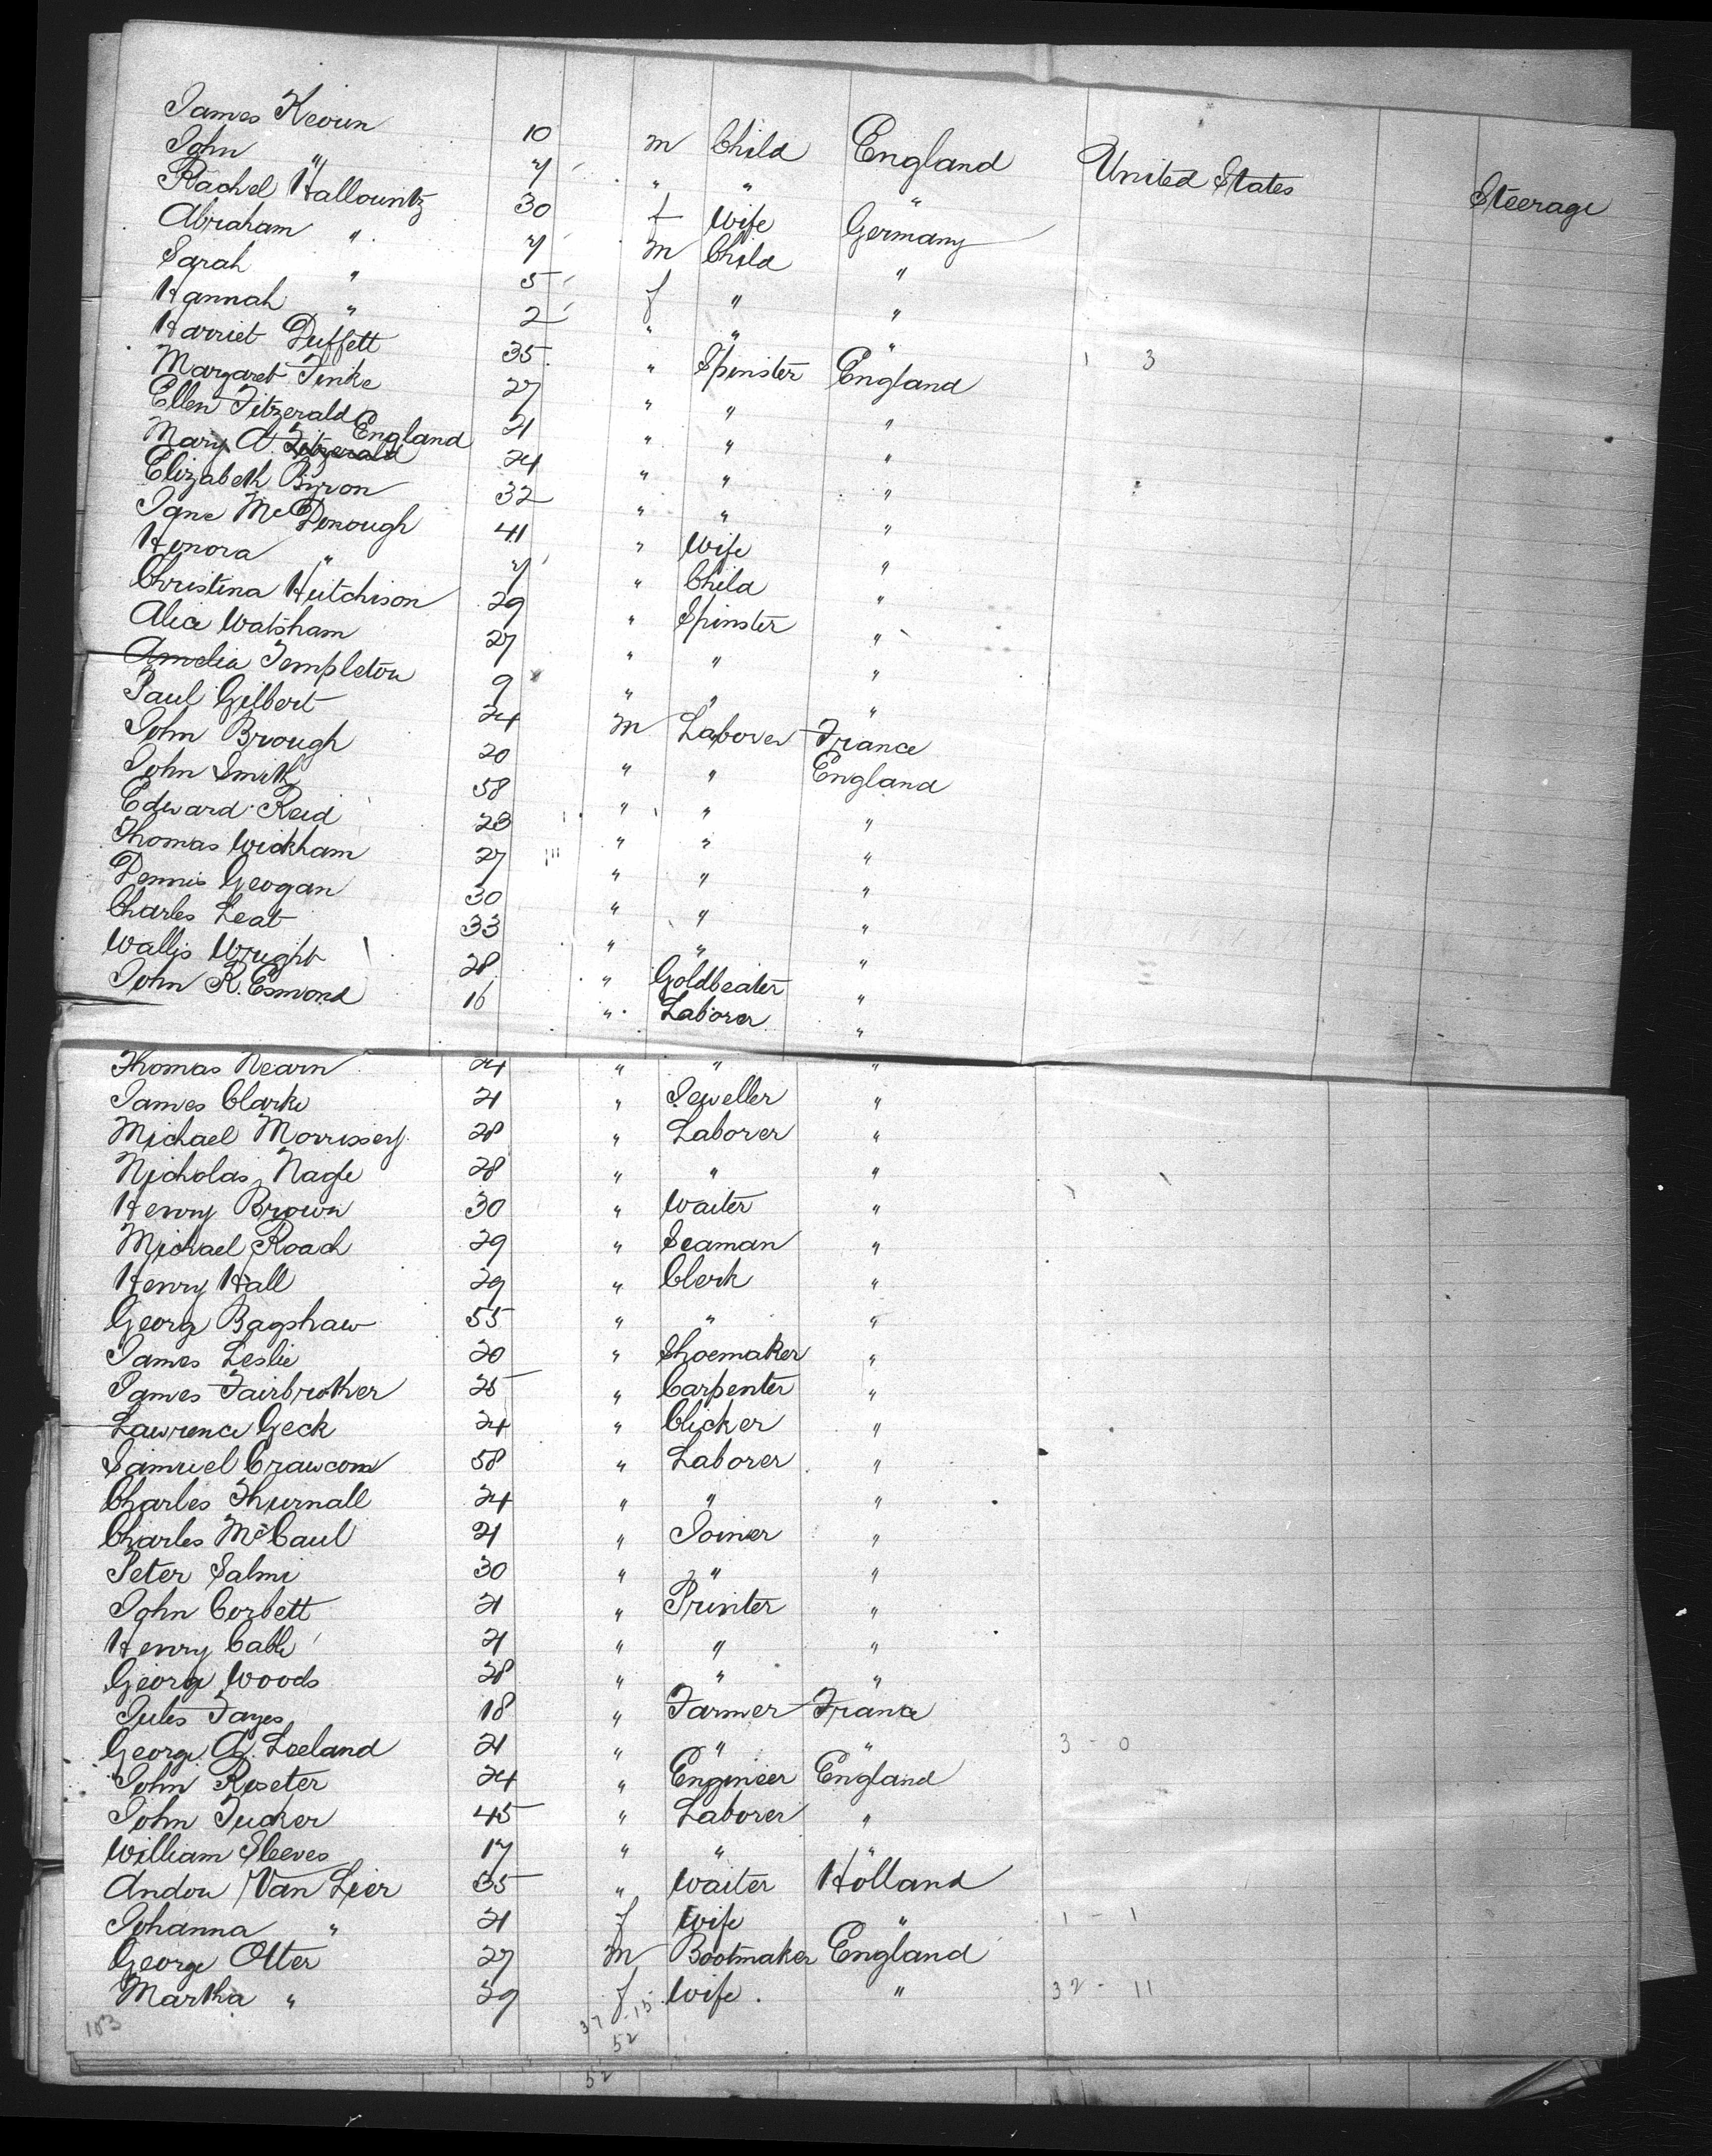 James Kevin 10 m Child England United States Steerage
John " 7 " " "
Rachel Hallountz 30 f Wife Germany
Abraham " 7 m Child "
Sarah " 5 f " "
Hannah " 2 " " "
Harriet Duffett 35 " Spinster England 1 3
Margaret Finke 27 " " "
Ellen Fitzerald 21 " " "
England
Mary A. Fitzerald 24 " " "
Elizabeth Byron 32 " " "
Jane McDonough 41 " Wife "
Honora " 7 " Child "
Christina Hutchison 29 " Spinster "
Alice Watsham 27 " " "
Amelia Templeton 9 " " "
Paul Gilbert 24 m Laborer France
John Brough 20 " " England
John Smith 58 " " "
Edward Reid 23 " " "
Thomas Wickham 27 " " "
Dennis Geogan 30 " " "
Charles Leat 33 " " "
Wallis Wright 28 " Goldbeater "
John R. Esmond 16 " Laborer "
Thomas Nearn 24 " " "
James Clarke 21 " Jeweller "
Michael Morrissey 28 " Laborer "
Nicholas Nagle 28 " " "
Henry Brown 30 " Waiter "
Michael Roach 29 " Seaman "
Henry Hall 29 " Clerk "
George Bagshaw 55 " " "
James Leslie 20 " Shoemaker "
James Fairbrother 25 " Carpenter "
Lawrence Geck 24 " Clicker "
Samuel Crawcom 58 " Laborer "
Charles Thurnall 24 " " "
Charles McCaul 21 " Joiner "
Peter Salmi 30 " " "
John Corbett 21 " Printer "
Henry Cable 21 " " "
George Woods 28 " " "
Jules Fayes 18 " Farmer France
George A. Leeland 21 " " " 3 - 0
John Roseter 24 " Engineer England
John Tucker 45 " Laborer "
William Sleeves 17 " " "
Andon Van Lier 35 " Waiter Holland
Johanna " 21 f Wife " 1 - 1
George Otter 27 m Bootmaker England
Martha " 29 f Wife " 32 - 11
183 37 . 15
52
52